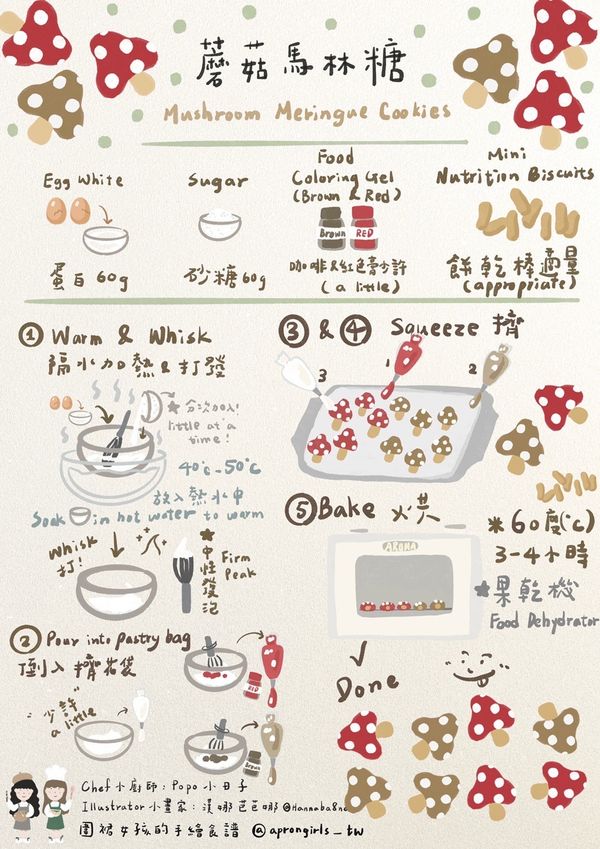 蘑菇馬林糖
Mushroom Meringue Cookies
Egg White
蛋白 60g
Sugar
砂糖 60g
Food
Coloring Gel
(Brown & Red)
Brown
RED
咖啡&紅色膏少許
(a little)
Mini
Nutrition Biscuits
餅乾棒適量
(appropriate)
① Warm & Whisk
隔水加熱&打發
★ 分次加入!
little at a
time!
40°c-50°c
放入熱水中
Soak in hot water to warm
Whisk
打!
★中性發泡
Firm
Peak
② Pour into pastry bag
倒入擠花袋
RED
"少許"
a little
Brown
③ & ④ Squeeze 擠
3
1
2
⑤ Bake 烘
AROMA
*60度(°c)
3-4小時
★果乾機
Food Dehydrator
Done
Chef小廚師:Popo小日子
Illustrator小畫家:漢娜芭芭娜
圍裙女孩的手繪食譜 @aprongirls_tw